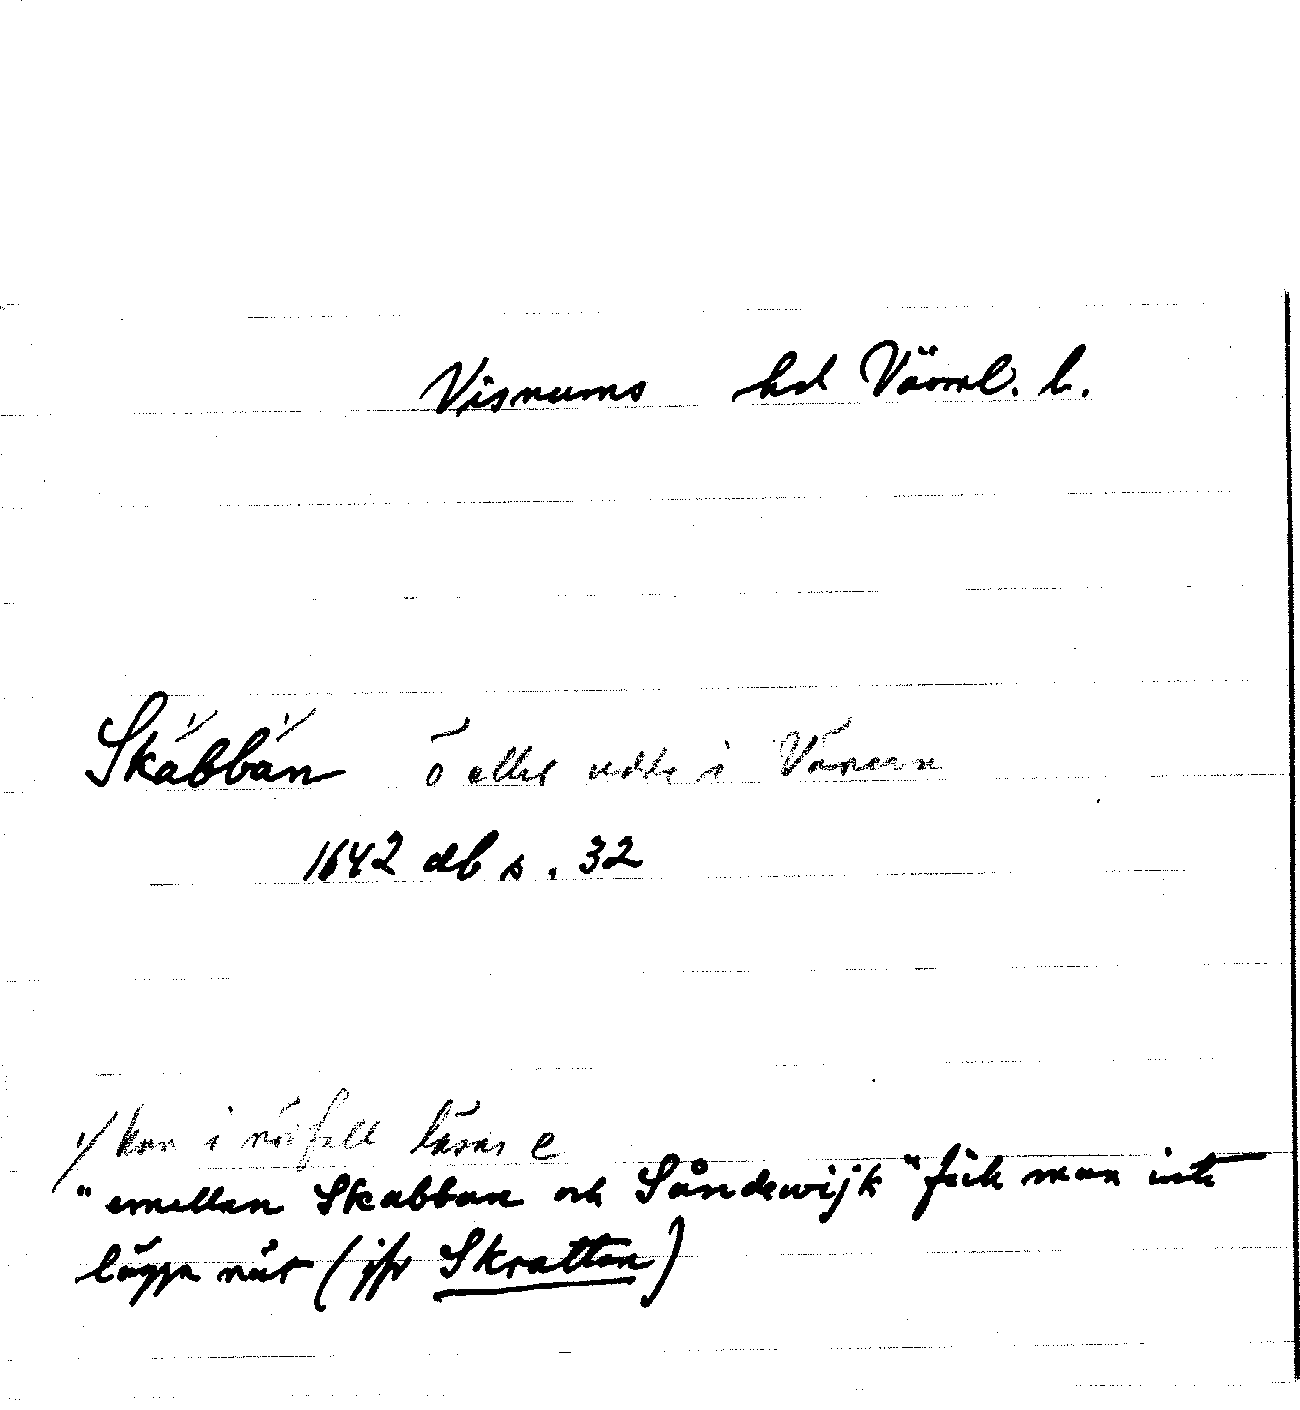 Visnums hd Värml. l.
Skabban ö eller udde i Vänern
1642 db s. 32
1/ kan i nödfall läsas e
"emellan Skabban och Såndewijk" fick man inte
lägga nät (jfr Skrattan)